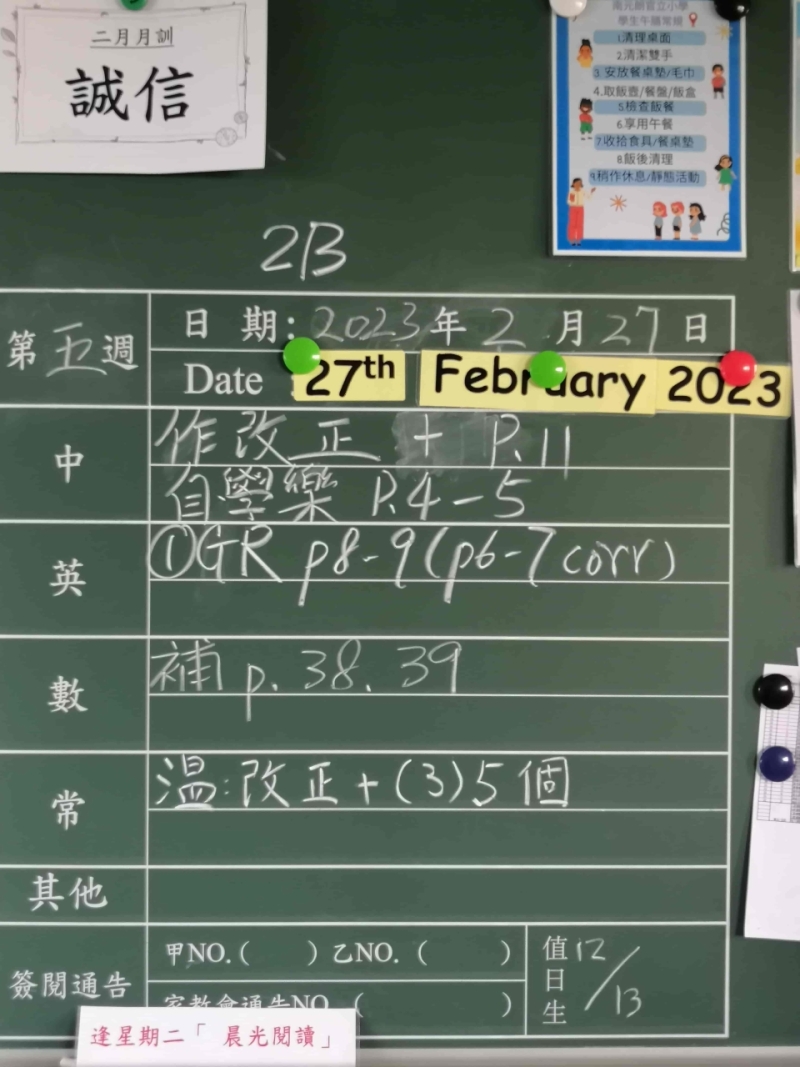 二月月訓
誠信
學生午膳常規
1.清理桌面
2.清潔雙手
3.安放餐桌墊/毛巾
4.取飯壺/餐盤/飯盒
5.檢查飯餐
6.享用午餐
7.收拾食具/餐桌墊
8.飯後清理
9.稍作休息/靜態活動
2B
第五週
日期：2023年2月27日
Date 27th February 2023
中
作改正 + P.11
自學樂 P.4-5
英
①GR p8-9(p6-7 corr)
數
補 p.38.39
常
溫:改正+(3)5個
其他
簽閱通告
甲NO.( )乙NO.( )
家教會通告NO.( )
值日生 12/13
逢星期二「晨光閱讀」